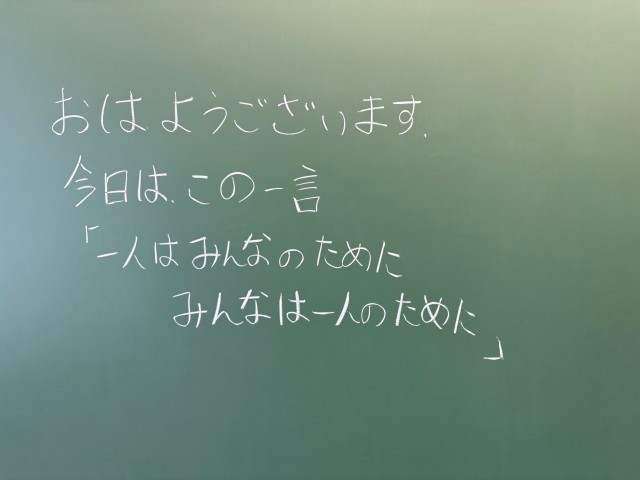 おはようございます.
今日は.この一言
「一人はみんなのために
みんなは一人のために」